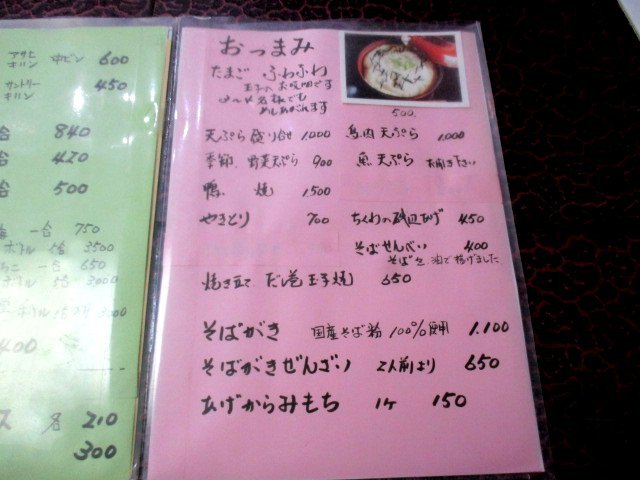 アサヒ
キリン 中ビン 600
サントリー
キリン 450
合 840
合 420
合 500
一合 750
ボトル 5合 3500
一合 650
ボトル 5合 3000
ボトル 3000
400
ス 各 210
300
おつまみ
たまご ふわふわ
玉子のお吸物です
500
天ぷら盛り合せ 1,000
鳥肉天ぷら 1,000
季節、野菜天ぷら 900
魚天ぷら お聞き下さい
鴨焼 1,500
やきとり 700
ちくわの磯辺あげ 450
そばせんべい 400
そばを油で揚げました
焼き立て だし巻玉子焼 650
そばがき 国産そば粉 100%使用 1.100
そばがきぜんざい 2人前より 650
あげからみもち 1ケ 150